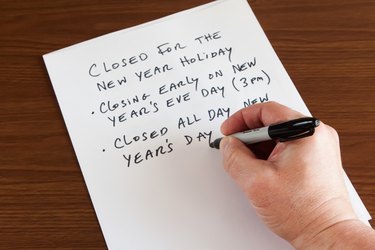 CLOSED FOR THE
NEW YEAR HOLIDAY
• CLOSING EARLY ON NEW
YEAR'S EVE DAY (3PM)
• CLOSED ALL DAY NEW
YEAR'S DAY